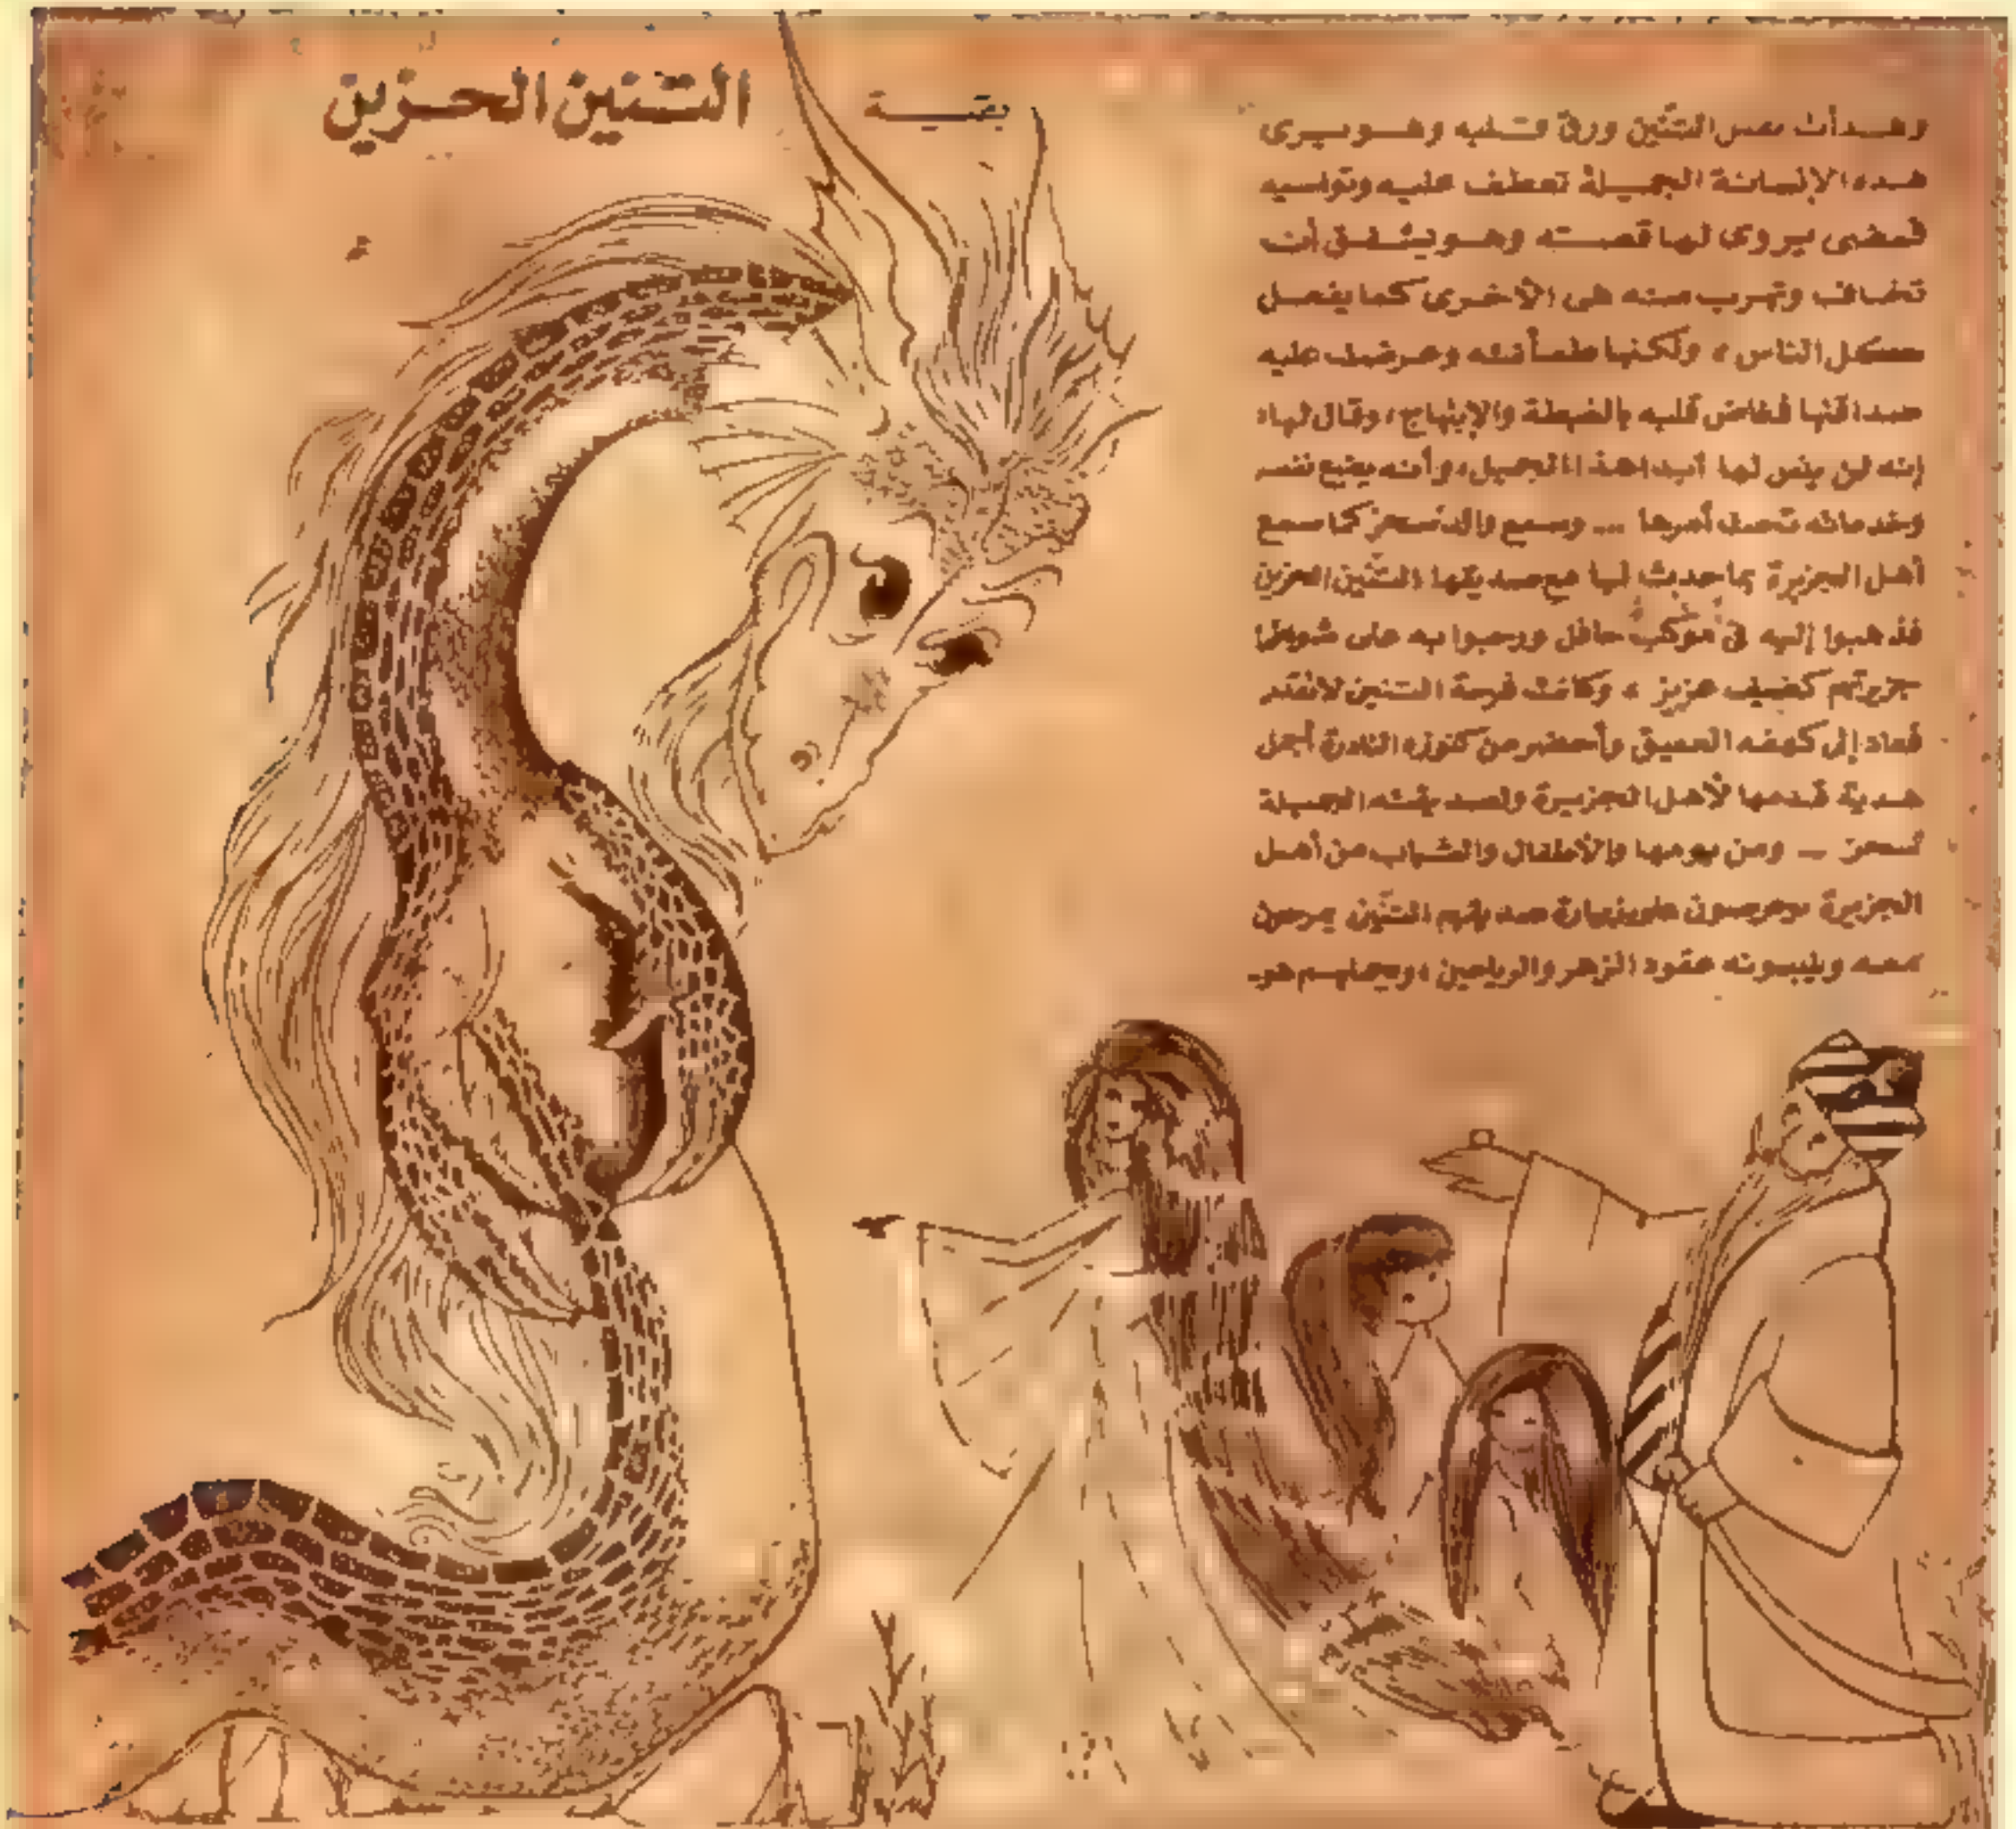 بقية
التنين الحزين
وهدأت نفس التنّين ورق قلبه وهو يرى
هذه الإنسانة الجميلة تعطف عليه وتواسيه
فمضى يروى لها قصته وهو يشفق أن
تخاف وتهرب منه هى الأخرى كما يفعل
كل الناس، ولكنها طمأنته وعرضت عليه
صداقتها ففاض قلبه بالغبطة والإبتهاج، وقال لها:
إنه لن ينسى لها أبدا هذا الجميل، وأنه يضع نفسه
وخدماته تحت أمرها ... وسمع والد كما سمع
أهل الجزيرة بما حدث لها مع صديقها التنّين الحزين
فذهبوا إليه فى موكب حافل ورحبوا به على شواطئ
جزيرتهم كضيف عزيز، وكانت فرحة التنين لا تقدر
فعاد إلى كهفه العميق وأحضر من كنوزه النادرة أجمل
هدية قدمها لأهل الجزيرة ولصديقته الجميلة
... ومن يومها والأطفال والشباب من أهل
الجزيرة يحرصون على زيارة صديقهم التنّين يمرحون
معه ويلبسونه عقود الزهر والرياحين، ويحملهم هو-